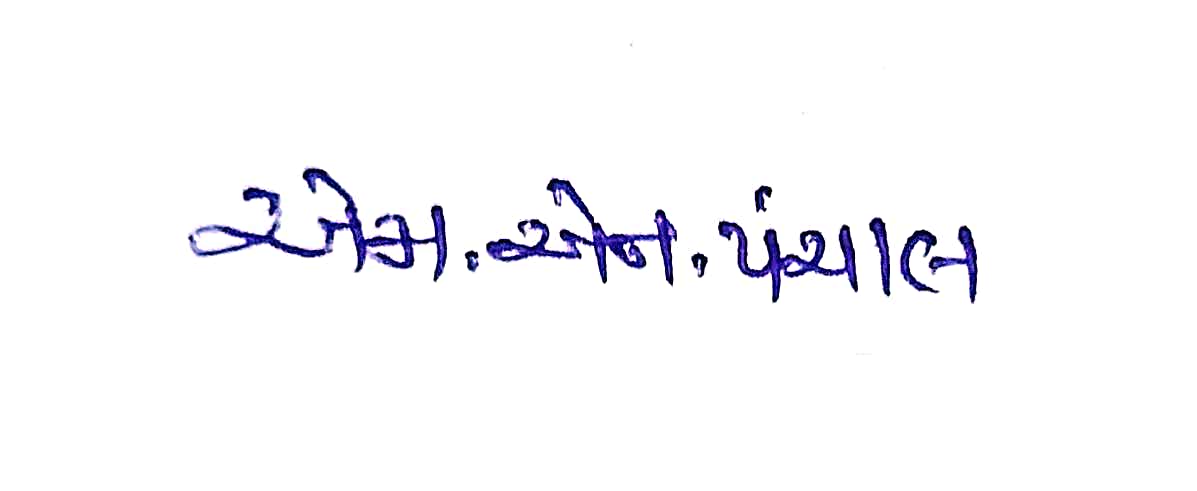 એમ.એન.પંચાલ